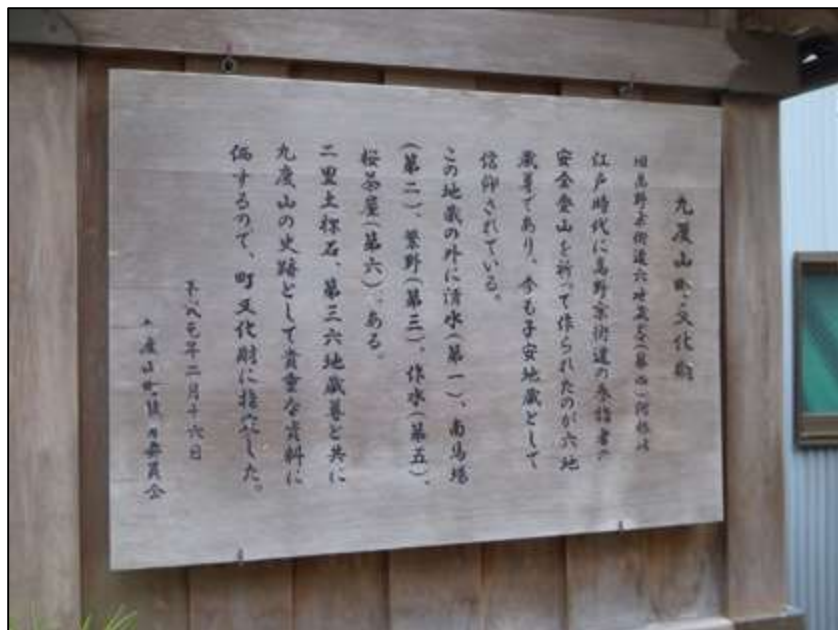 九度山町文化財
旧高野京街道六地蔵尊(第四)河根
江戸時代に高野京街道の参詣者の
安全登山を祈って作られたのが六地
蔵尊であり、今も子安地蔵として
信仰されている。
この地蔵の外に清水(第一)、南馬場
(第二)、繁野(第三)、作水(第五)、
桜茶屋(第六)、ある。
二里土標石、第三六地蔵尊と共に
九度山の史跡として貴重な資料に
価するので、町文化財に指定した。
元年二月十六日
九度山町教育委員会